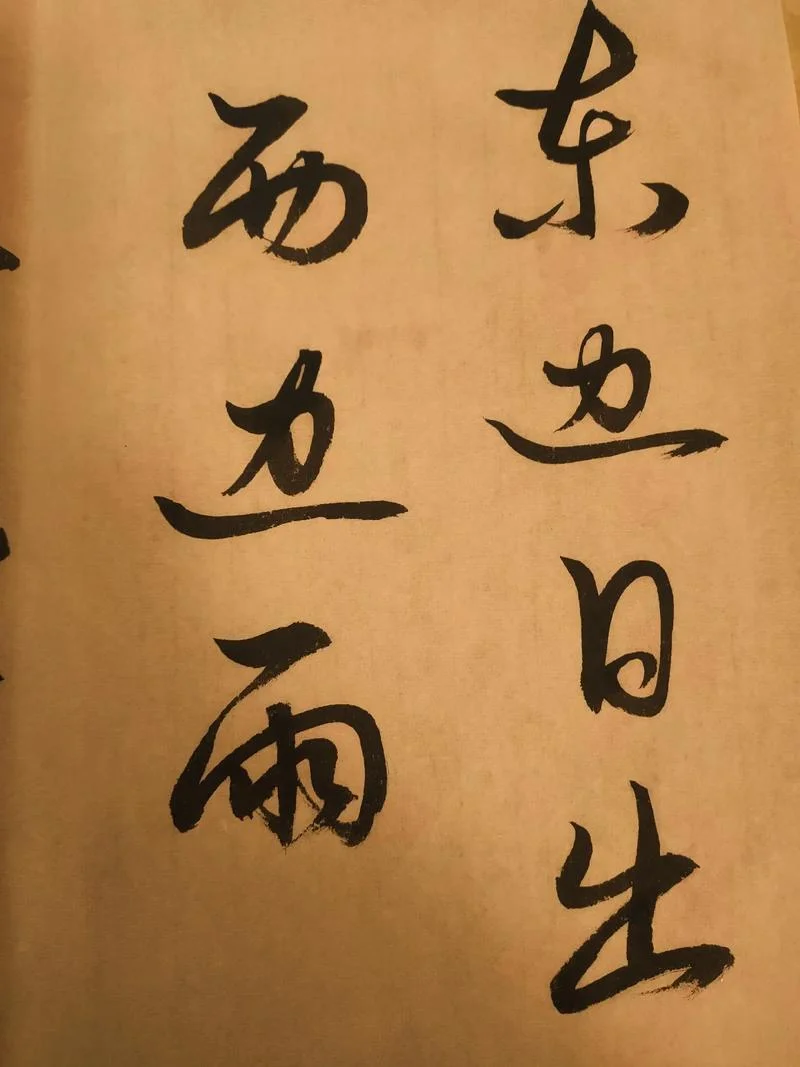 东边日出
西边雨